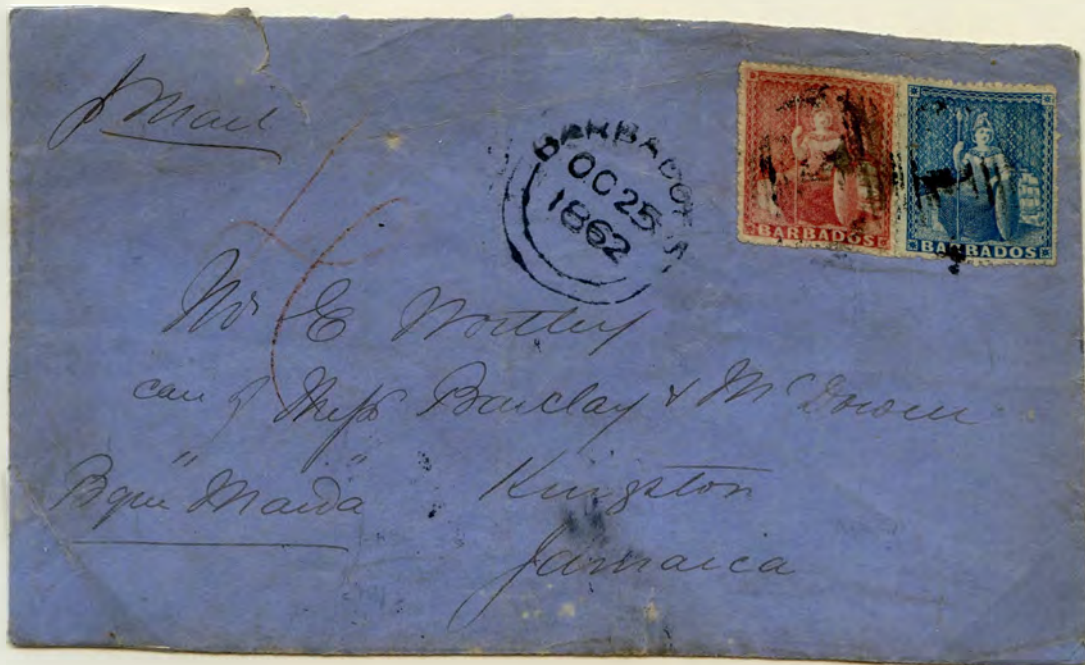 p Mail
BARBADOES
OC 25
1862
BARBADOS
BARBADOS
Mr E Wortley
care of Mess Barclay & McDowell
Bque "Maida"
Kingston
Jamaica